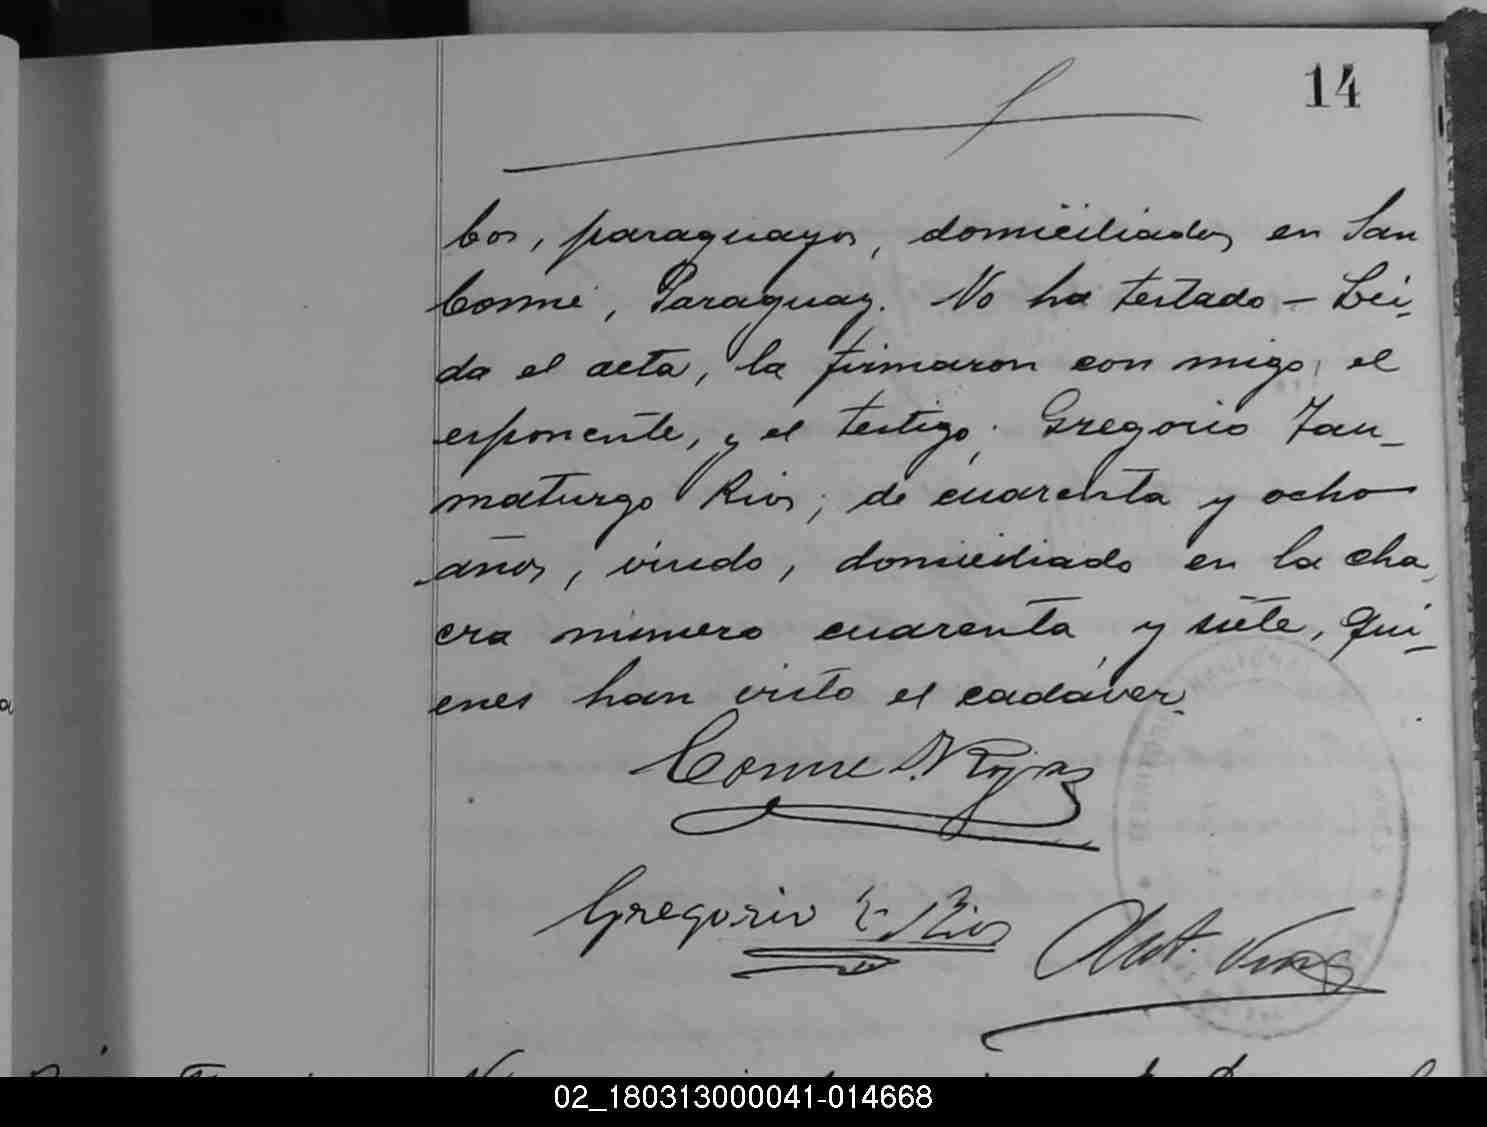 14
bos, paraguayos, domiciliados en San
Cosme, Paraguay. No ha testado - Lei-
da el acta, la firmaron con migo, el
esponente, y el testigo, Gregorio Tau-
maturgo Rios, de cuarenta y ocho
años, viudo, domiciliado en la cha
cra número cuarenta y siete, qui-
enes han visto el cadáver.
Cosme D. Rojas
Gregorio T. Rios
Ant.
02_180313000041-014668